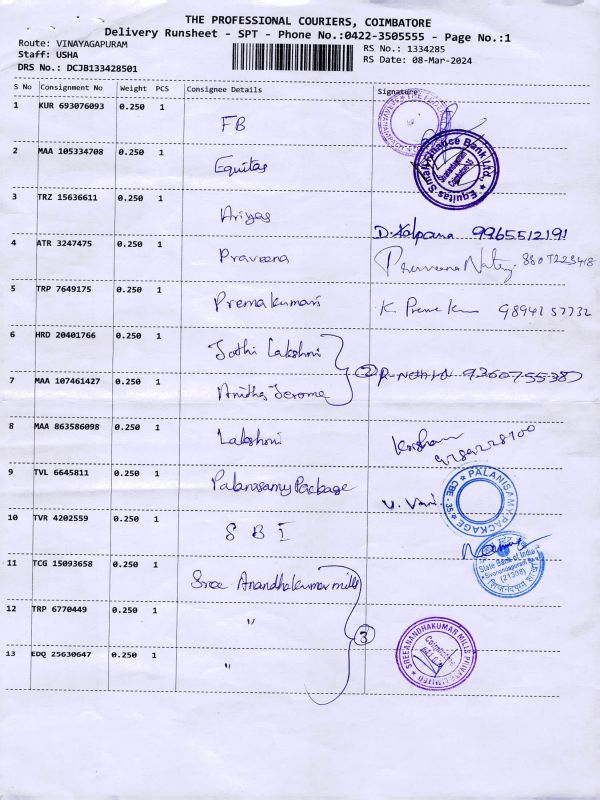 THE PROFESSIONAL COURIERS, COIMBATORE
Delivery Runsheet - SPT - Phone No.:0422-3505555 - Page No.:1
Route: VINAYAGAPURAM
Staff: USHA
DRS No.: DCJB133428501
RS No.: 1334285
RS Date: 08-Mar-2024
S No Consignment No Weight PCS Consignee Details Signature
1 KUR 693076093 0.250 1 FB
2 MAA 105334708 0.250 1 Equitas
Equitas Small Finance Bank Ltd.
3 TRZ 15636611 0.250 1 Ariyas D. Kalpana 9965512191
4 ATR 3247475 0.250 1 Praveena
5 TRP 7649175 0.250 1 Premakumari
6 HRD 20401766 0.250 1 Jothi Lakshmi
7 MAA 107461427 0.250 1 Anitha Jerome
2
8 MAA 863586098 0.250 1 Lakshmi
9 TVL 6645811 0.250 1 Palanisamy Package
PALANISAMY PACKAGE CBE - 35
10 TVR 4202559 0.250 1 S B I
State Bank of India
(21308)
11 TCG 15093658 0.250 1 Sree Anandhakumar mills
12 TRP 6770449 0.250 1 "
3
13 EDQ 25630647 0.250 1 "
SREEANANDHAKUMAR MILLS PRIVATE LIMITED